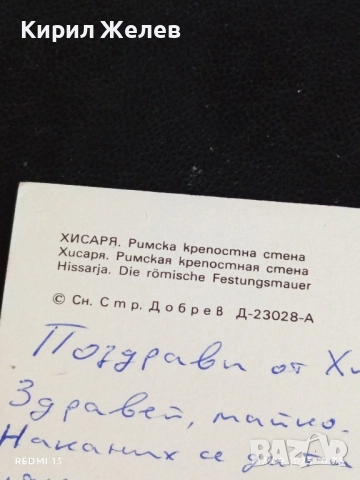 Кирил Желев
ХИСАРЯ. Римска крепостна стена
Хисаря. Римская крепостная стена
Hissarja. Die römische Festungsmauer
© Сн. Стр. Добрев Д-23028-А
Поздрави от Хи
Здравей, майко.
Наканих се да ти
REDMI 13
bazar